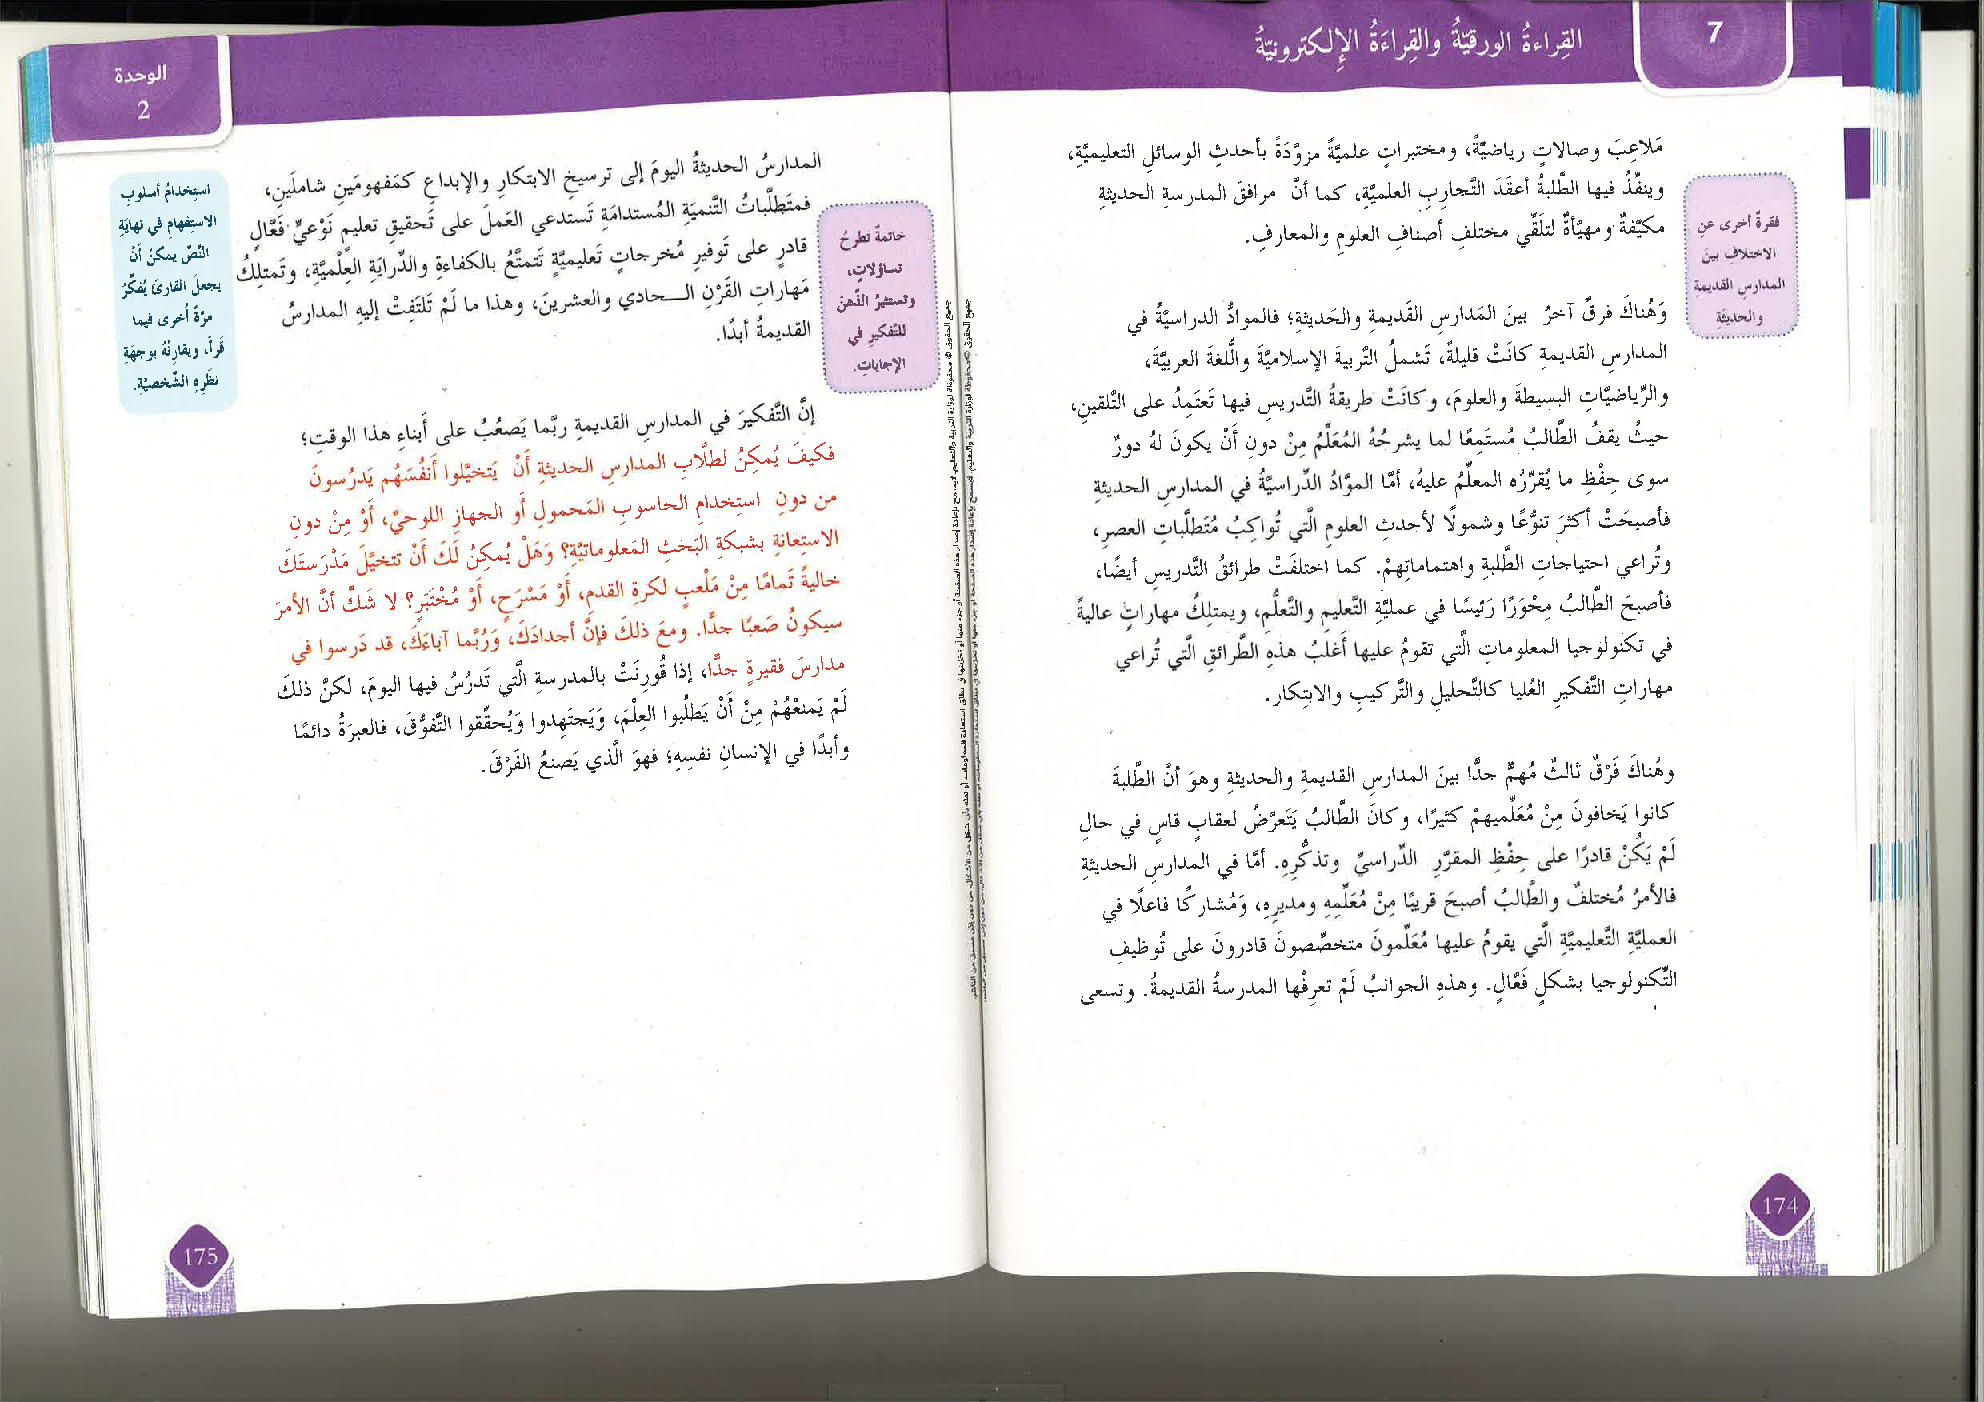 7
القِراءةُ الورقيّةُ والقِراءَةُ الإِلكترونيّةُ
فقرةٌ أخرى عنِ
الاختلاف بينَ
المدارسِ القديمةِ
والحديثةِ
مَلاعِبَ وصالاتٍ رياضيَّةً، ومختبراتٍ علميَّةً مزوَّدَةً بأحدثِ الوسائلِ التعليميَّةِ،
وينفِّذُ فيها الطَّلبةُ أعقَدَ التَّجاربِ العلميَّةِ، كما أنَّ مرافقَ المدرسةِ الحديثةِ
مكيَّفةٌ ومهيَّأةٌ لتلَقِّي مختلفِ أصنافِ العلومِ والمعارفِ.
وَهُناكَ فرقٌ آخرُ بينَ المَدارسِ القَديمة والحَديثةِ؛ فالموادُّ الدراسيَّةُ في
المدارسِ القديمةِ كانَتْ قليلةً، تَشملُ التَّربيةَ الإسلاميَّةَ واللُّغةَ العربيَّةَ،
والرِّياضيَّاتِ البسيطةَ والعلومَ، وكانَتْ طريقةُ التَّدريسِ فيها تَعتَمِدُ على التَّلقينِ،
حيثُ يقفُ الطَّالبُ مُستَمِعًا لما يشرحُهُ المُعَلِّمُ مِنْ دونِ أَنْ يكونَ لهُ دورٌ
سوى حِفْظِ ما يُقرِّرُه المعلِّمُ عليهُ، أمَّا الموَّادُ الدِّراسيَّةُ في المدارسِ الحديثةِ
فأصبحَتْ أكثرَ تنوُّعًا وشمولًا لأحدثِ العلومِ الَّتي تُواكِبُ مُتَطلَّباتِ العصرِ،
وتُراعي احتياجاتِ الطَّلبةِ واهتماماتِهمْ. كما اختلفَتْ طرائقُ التَّدريسِ أيضًا،
فأصبحَ الطَّالبُ مِحْوَرًا رَئيسًا في عمليَّةِ التَّعليمِ والتَّعلُّمِ، ويمتلكُ مهاراتٍ عاليةً
في تكنولوجيا المعلوماتِ الَّتي تقومُ عليها أَغلبُ هذهِ الطَّرائقِ الَّتي تُراعي
مهاراتِ التَّفكيرِ العُليا كالتَّحليلِ والتَّركيبِ والابتكار.
وهُناكَ فَرْقٌ ثالثٌ مُهمٌّ جدًّا بينَ المدارسِ القديمةِ والحديثةِ وهوَ أنَّ الطَّلبةَ
كانوا يَخافونَ مِنْ مُعَلِّميهمْ كثيرًا، وكانَ الطَّالبُ يَتَعرَّضُ لعقابٍ قاسٍ في حالِ
لَمْ يَكُنْ قادرًا على حِفْظِ المقرَّرِ الدِّراسيِّ وتذكُّرِهِ. أمَّا في المدارسِ الحديثةِ
فالأمرُ مُختلفٌ والطَّالبُ أصبحَ قريبًا مِنْ مُعَلِّمِهِ ومديرِهِ، وَمُشاركًا فاعلًا في
العمليَّةِ التَّعليميَّةِ الَّتي يقومُ عليها مُعَلِّمونَ متخصِّصونَ قادرونَ على تَوظيفِ
التّكنولوجيا بشكلٍ فَعَّالٍ. وهذهِ الجوانبُ لَمْ تعرِفْها المدرسةُ القديمةُ. وتسعى
174
الوحدة
2
المدارسُ الحديثةُ اليومَ إلى ترسيخِ الابتكارِ والإبداعِ كمَفهومَينِ شاملَينِ،
فمتَطلَّباتُ التَّنميَةِ المُستدامَةِ تَستدعي العَملَ على تَحقيقِ تعليمٍ نَوْعيٍّ فَعَّالٍ
قادرٍ على تَوفيرِ مُخرجاتٍ تَعليميَّةٍ تَتمتَّعُ بالكفاءةِ والدِّرايَةِ العِلْميَّةِ، وتَمتلِكُ
مَهاراتِ القَرْنِ الـــحادي والعشرينَ، وهذا ما لَمْ تَلتَفِتْ إليهِ المدارسُ
القديمةُ أبدًا.
خاتمةٌ تطرحُ
تساؤلاتٍ،
وتستثيرُ الذّهنَ
للتّفكيرِ في
الإجاباتِ.
استِخدامُ أسلوبِ
الاستِفهامِ في نهايَةِ
النّصِّ يمكنُ أنْ
يجعلَ القارئَ يُفكّرُ
مرّةً أخرى فيما
قرأَ، ويقارنُهُ بوجهَةِ
نظَرِهِ الشّخصيّةِ.
إنَّ التَّفكيرَ في المدارسِ القديمةِ ربَّما يَصعُبُ على أَبناءِ هذا الوقتِ؛
فكيفَ يُمكنُ لطلَّابِ المدارسِ الحديثةِ أَنْ يَتخيَّلوا أَنفُسَهُم يَدرُسونَ
من دونِ استخدامِ الحاسوبِ المَحمولِ أو الجهازِ اللوحيِّ، أَوْ مِنْ دونِ
الاستِعانةِ بشبكةِ البَحثِ المَعلوماتيَّةِ؟ وَهَلْ يُمكِنُ لَكَ أَنْ تتخيَّلَ مَدْرَستَكَ
خاليةً تَمامًا مِنْ مَلْعبٍ لكرةِ القدمِ، أَوْ مَسْرَحٍ، أَوْ مُخْتَبَرٍ؟ لا شَكَّ أنَّ الأمرَ
سيكونُ صَعبًا جدًّا. ومعَ ذلكَ فإنَّ أجدادَكَ، وَرُبَّما آباءَكَ، قد دَرسوا في
مدارسَ فقيرةٍ جدًّا، إذا قُورِنَتْ بالمدرسةِ الَّتي تَدرُسُ فيها اليومَ، لكنَّ ذلكَ
لَمْ يَمنعْهُمْ مِنْ أَنْ يَطلُبوا العِلْمَ، وَيَجتَهِدوا وَيُحقِّقوا التَّفوُّقَ، فالعبرَةُ دائمًا
وأبدًا في الإنسانِ نفسِهِ؛ فهوَ الَّذي يَصنعُ الفَرْقَ.
175